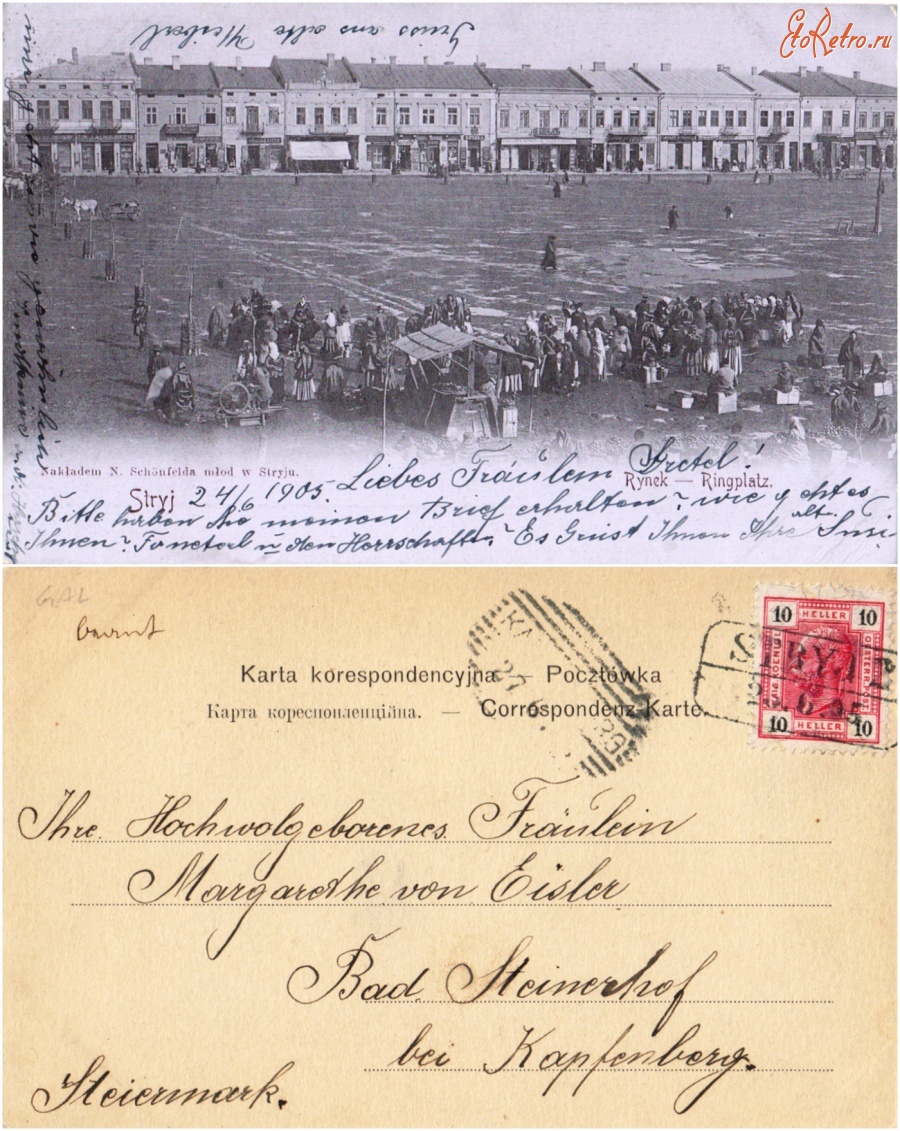 EtoRetro.ru
Gruss an alte
Nakładem N. Schönfelda młod w Stryju.
Rynek — Ringplatz.
Stryj 24/6 1905. Liebes Fräulein Gretel!
Bitte haben Sie meinen Brief erhalten? wie geht es
Ihnen? u den Herrschaft.? Es Grüst Ihnen Ihre alt. Susi
GAL
Karta korespondencyjna. — Pocztówka
Карта кореспонденційна. — Correspondenz-Karte.
10 HELLER 10
KAIS. KOENIGL. OESTERR. POST
10 HELLER 10
STRYJ
Ihre Hochwolgeborenes Fräulein
Margarethe von Eisler
Bad Steinerhof
bei Kapfenberg.
Steiermark.